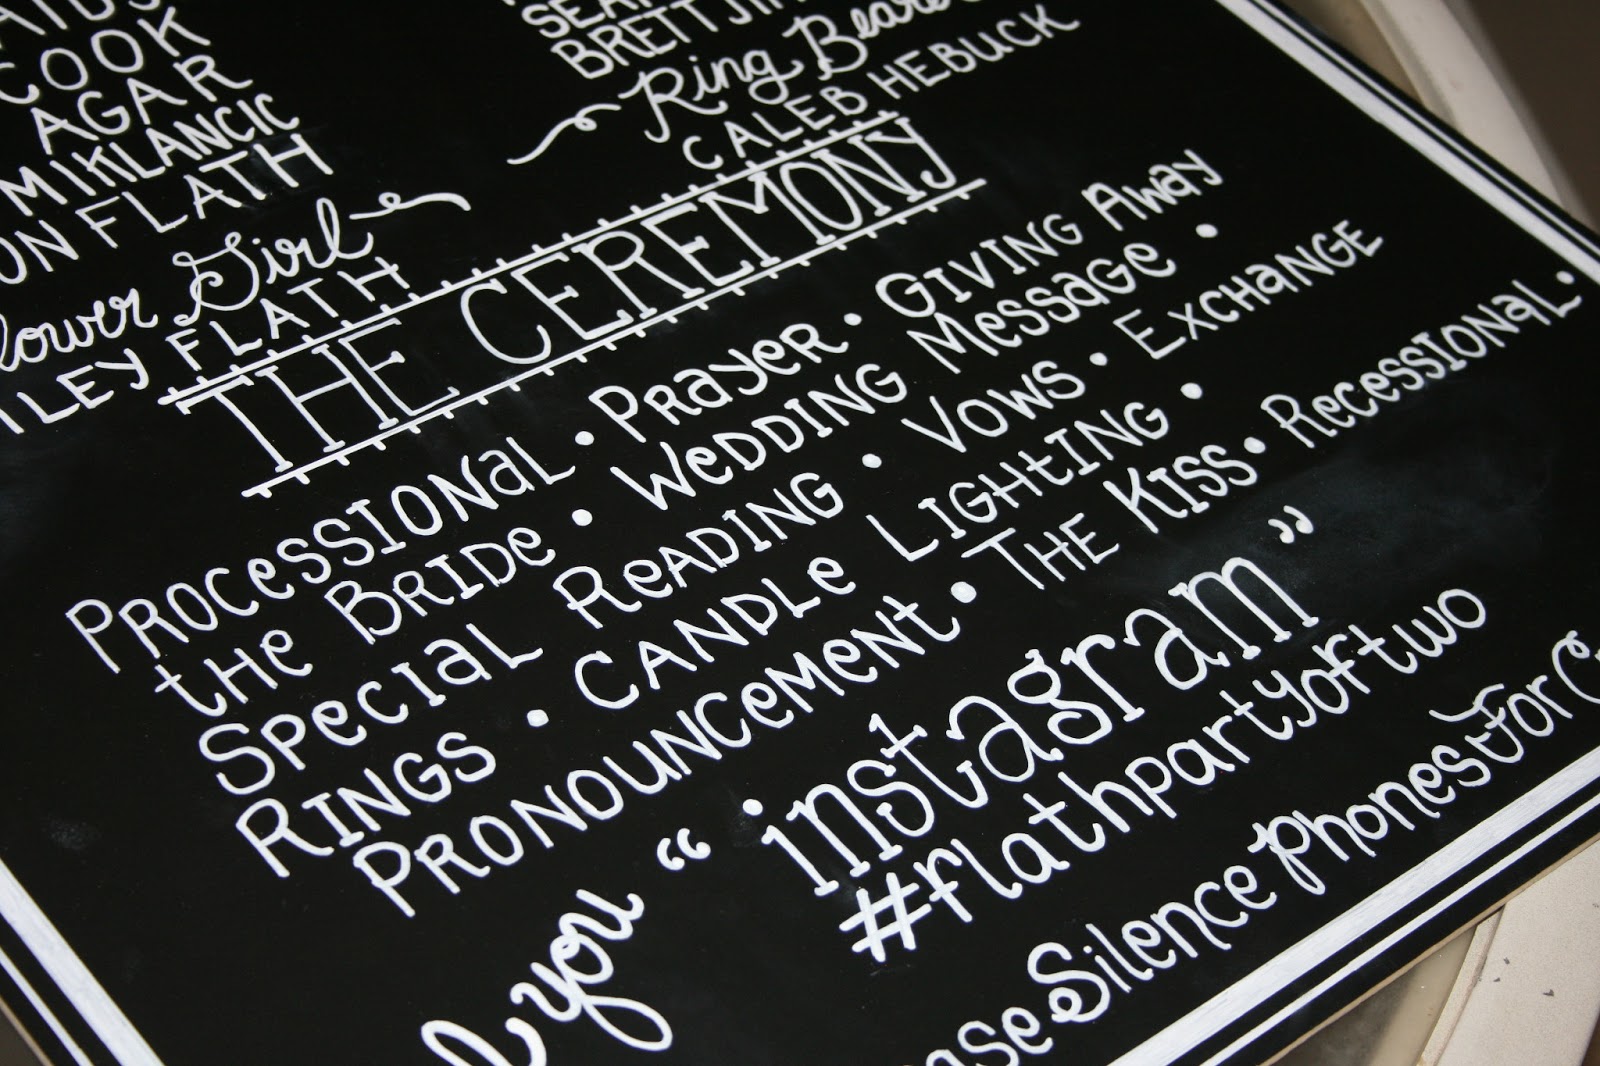 COOK
AGAR
MIKLANCIC
FLATH
Girl
FLATH
BRETT
Ring
CALEB HEBUCK
THE CEREMONY
PROCESSIONAL • PRAYER • GIVING AWAY
THE BRIDE • WEDDING MESSAGE •
SPECIAL READING • VOWS • EXCHANGE
RINGS • CANDLE LIGHTING •
PRONOUNCEMENT • THE KISS • RECESSIONAL •
you “instagram”
#flathpartyoftwo
Silence Phones For